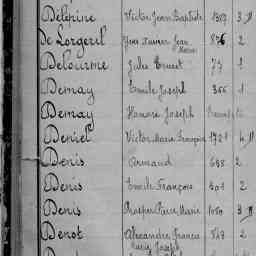 Delépine Victor Jean Baptiste 1359 3
De Lorgeril Yves Xavier Jean Marie 876 2
Delourme Jules Ernest 73 1
Demay Emile Joseph 366 1
Demay Honoré Joseph
Deniel Victor Marie François 1721 4
Denis Armand 698 2
Denis Emile François 801 2
Denis Prosper Pierre Marie 1080 3
Denot Alexandre Francis Marie Joseph 549 2